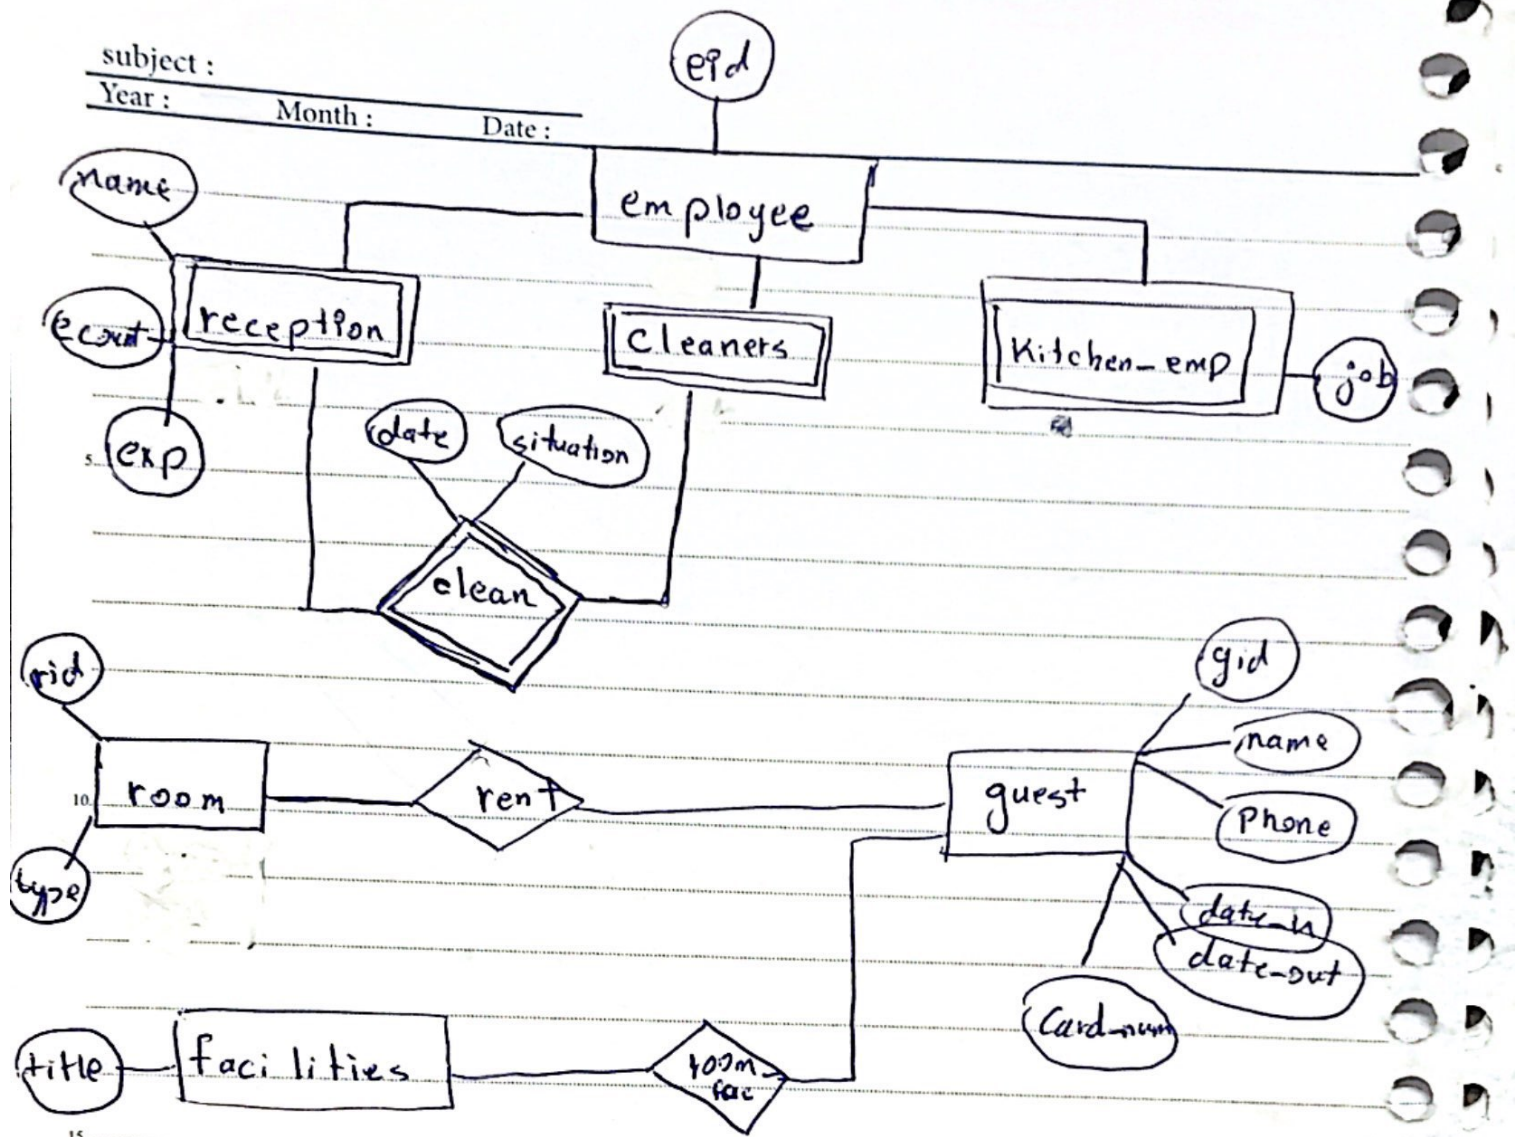 subject :
Year : Month : Date :
eid
employee
name
reception
Cleaners
Kitchen_emp
job
exp
date
situation
clean
5
rid
room
rent
guest
gid
name
phone
10
type
date_in
date_out
Card_num
title
facilities
room
fac
15